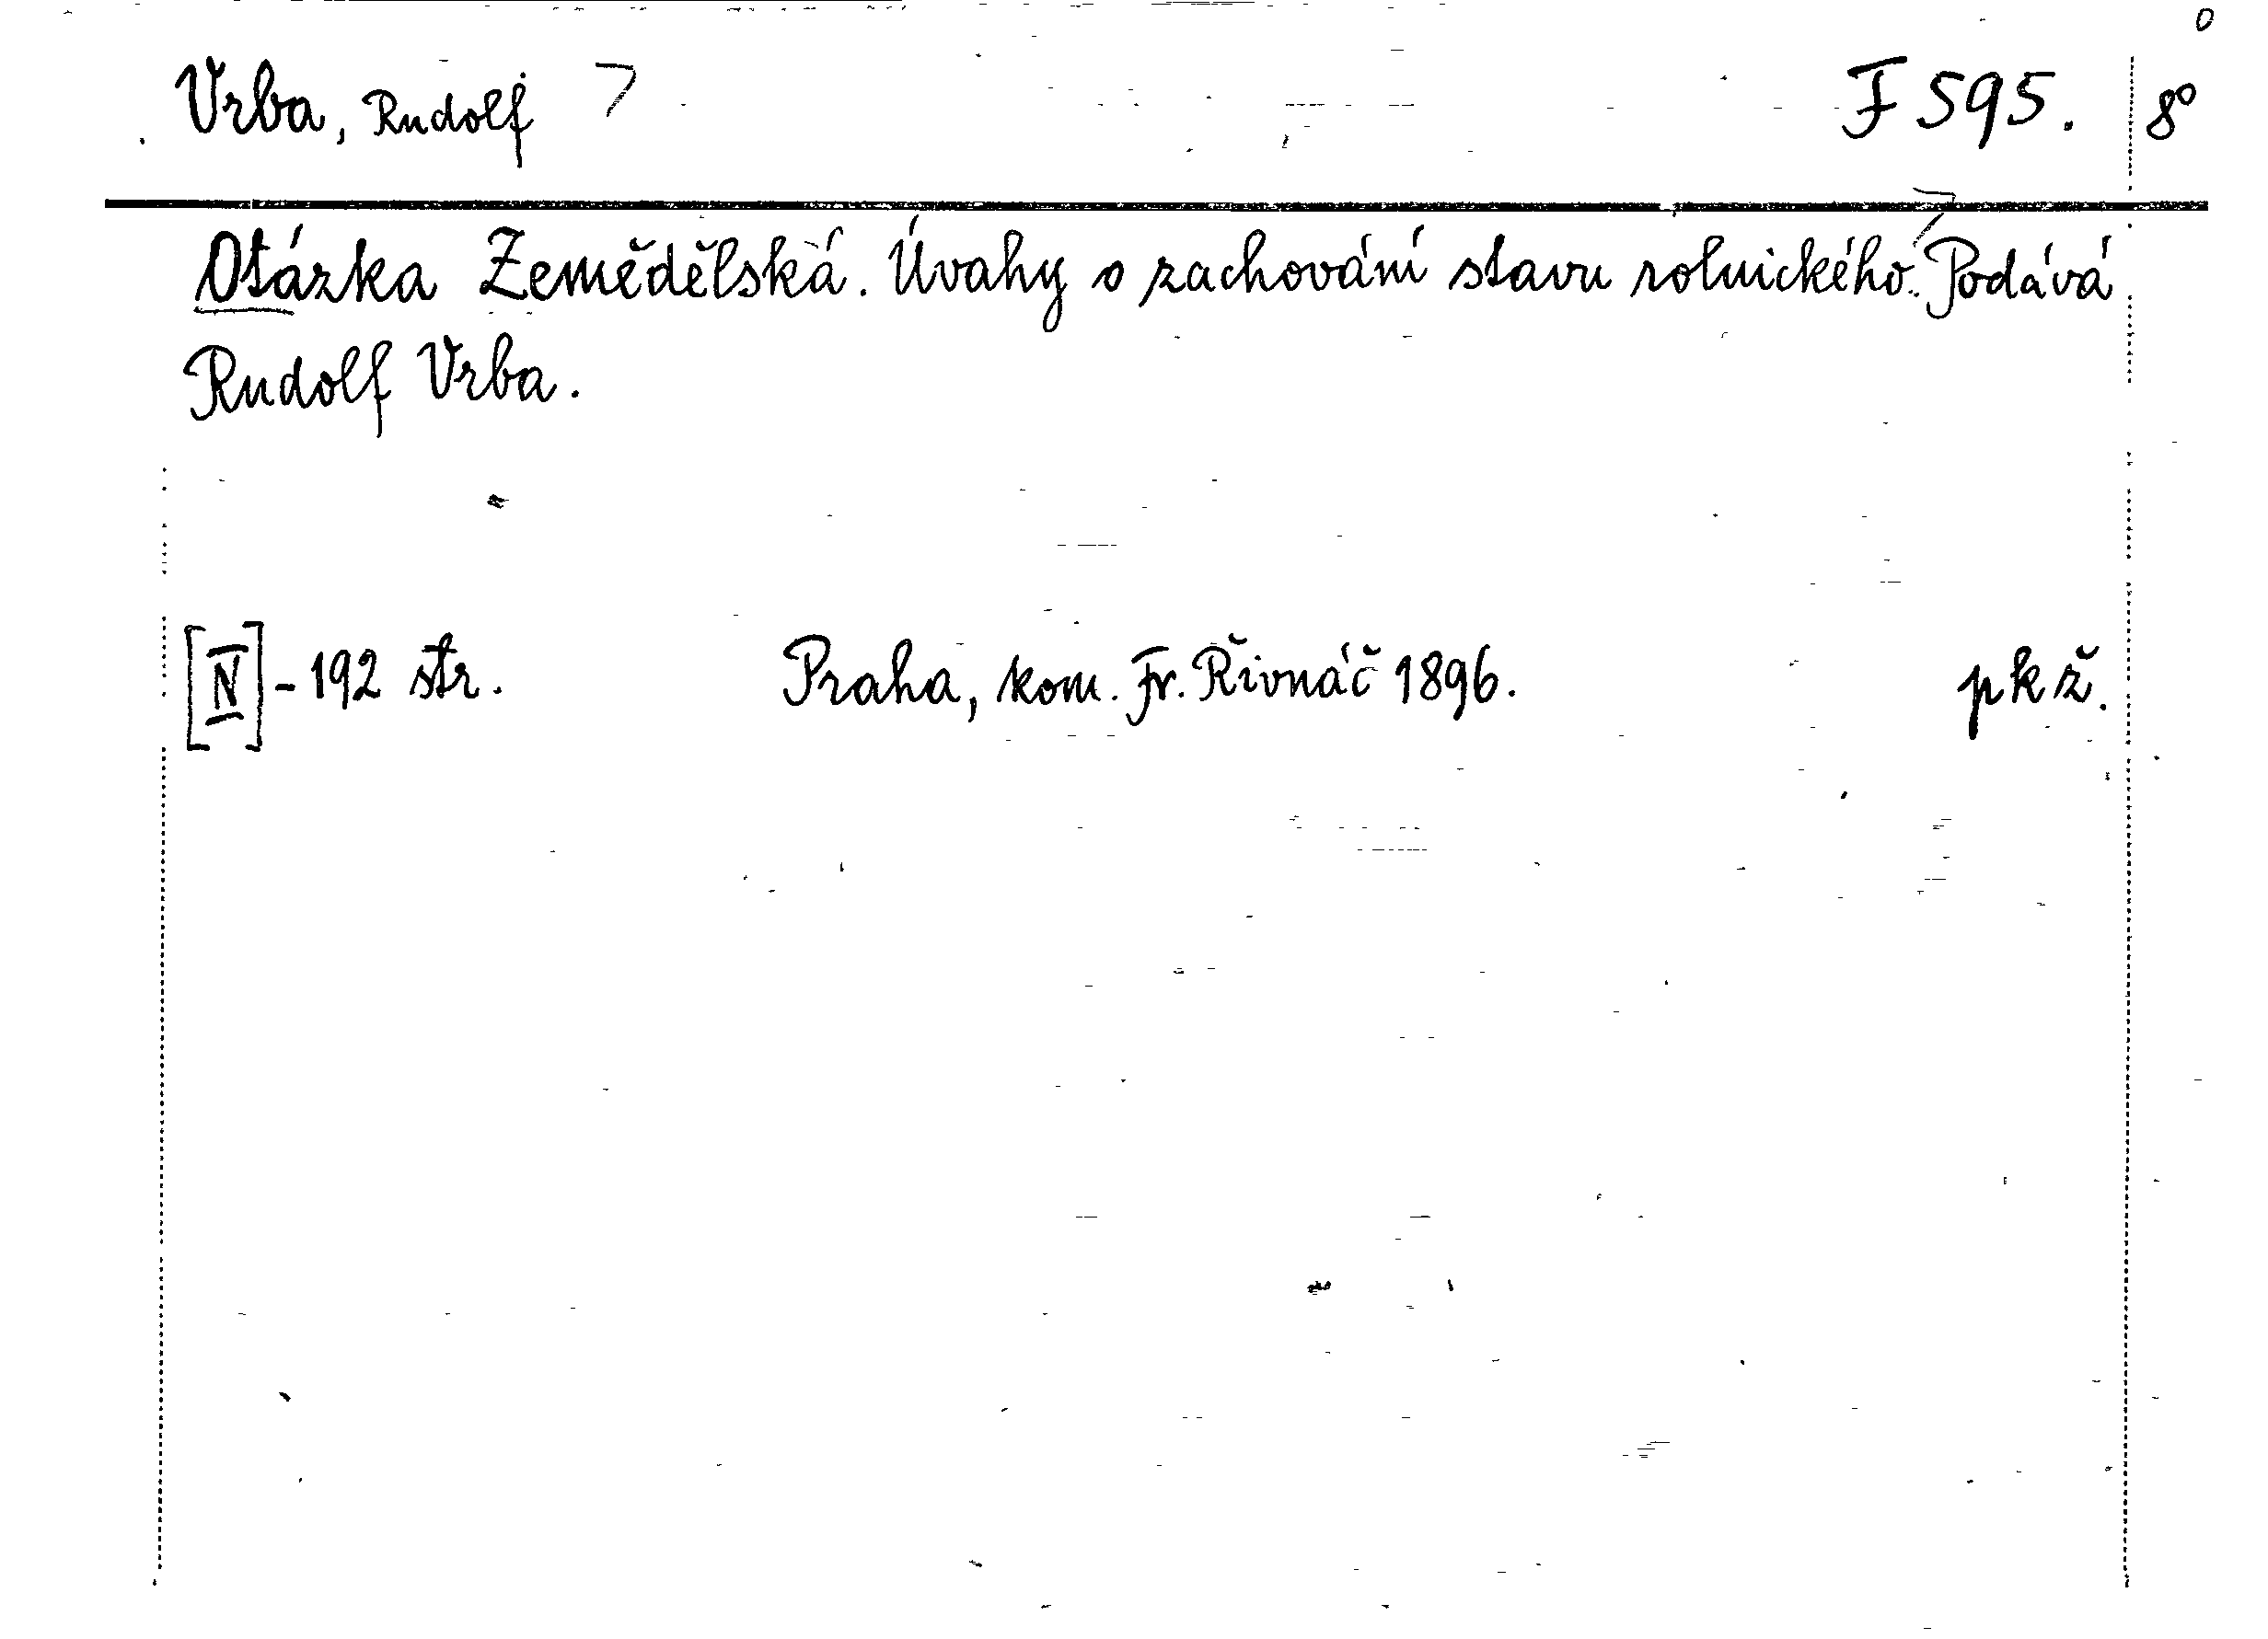 Vrba, Rudolf F 595. 8°
Otázka Zemědělská. Úvahy o zachování stavu rolnického. Podává
Rudolf Vrba.
[IV] - 192 str. Praha, kom. Fr. Řivnáč 1896. pkž.